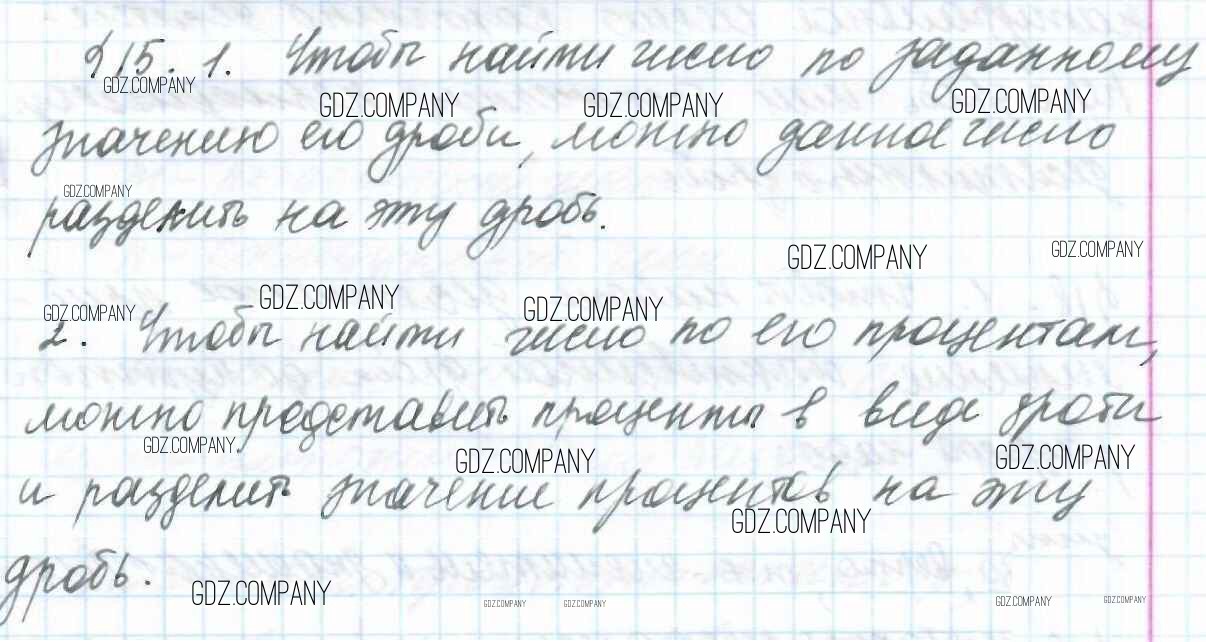 §15. 1. Чтобы найти число по заданному
GDZ.COMPANY
GDZ.COMPANY GDZ.COMPANY GDZ.COMPANY
значению его дроби, можно данное число
GDZ.COMPANY
разделить на эту дробь.
GDZ.COMPANY GDZ.COMPANY
GDZ.COMPANY GDZ.COMPANY GDZ.COMPANY
2. Чтобы найти число по его процентам,
можно представить проценты в виде дроби
GDZ.COMPANY GDZ.COMPANY GDZ.COMPANY
и разделить значение процентов на эту
GDZ.COMPANY
дробь.
GDZ.COMPANY GDZ.COMPANY GDZ.COMPANY GDZ.COMPANY GDZ.COMPANY